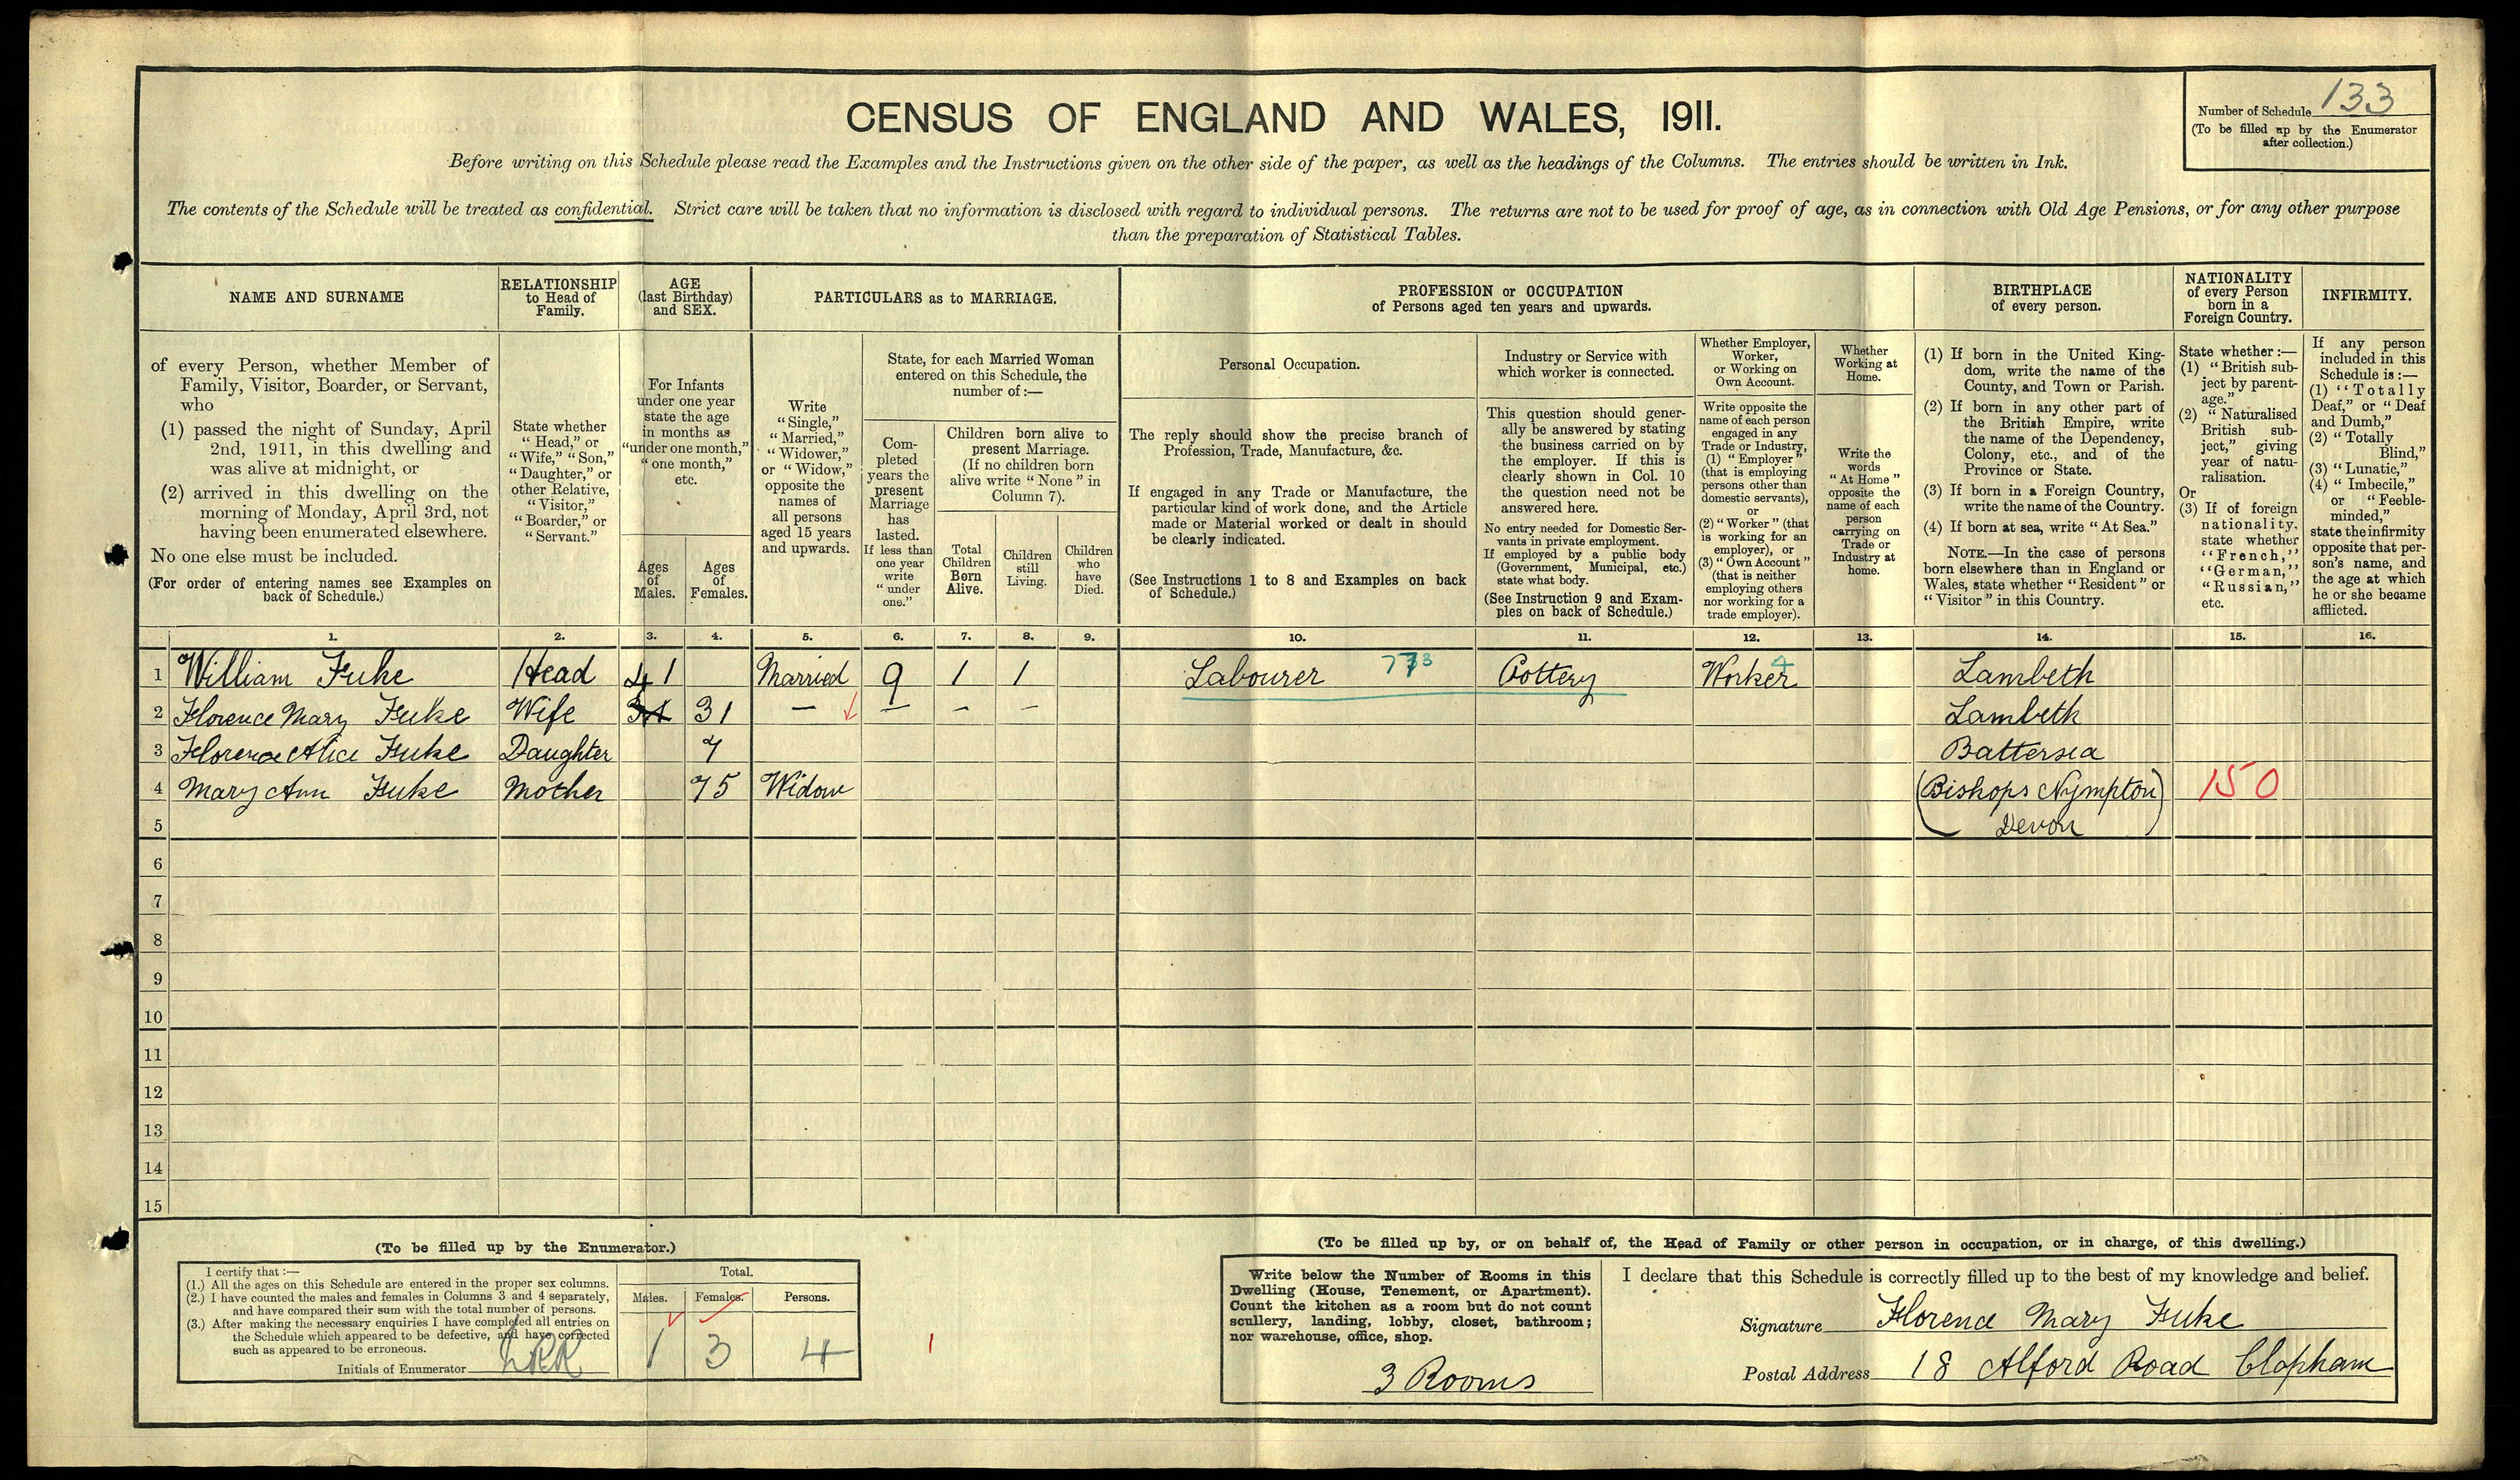 CENSUS OF ENGLAND AND WALES, 1911.
Number of Schedule 133
(To be filled up by the Enumerator
after collection.)
Before writing on this Schedule please read the Examples and the Instructions given on the other side of the paper, as well as the headings of the Columns. The entries should be written in Ink.
The contents of the Schedule will be treated as confidential. Strict care will be taken that no information is disclosed with regard to individual persons. The returns are not to be used for proof of age, as in connection with Old Age Pensions, or for any other purpose
than the preparation of Statistical Tables.
NAME AND SURNAME
RELATIONSHIP
to Head of
Family.
AGE
(last Birthday)
and SEX.
PARTICULARS as to MARRIAGE.
PROFESSION or OCCUPATION
of Persons aged ten years and upwards.
BIRTHPLACE
of every person.
NATIONALITY
of every Person
born in a
Foreign Country.
INFIRMITY.
of every Person, whether Member of
Family, Visitor, Boarder, or Servant,
who
(1) passed the night of Sunday, April
2nd, 1911, in this dwelling and
was alive at midnight, or
(2) arrived in this dwelling on the
morning of Monday, April 3rd, not
having been enumerated elsewhere.
No one else must be included.
(For order of entering names see Examples on
back of Schedule.)
State whether
"Head," or
"Wife," "Son,"
"Daughter," or
other Relative,
"Visitor,"
"Boarder," or
"Servant."
For Infants
under one year
state the age
in months as
"under one month,"
"one month,"
etc.
Ages
of
Males.
Ages
of
Females.
Write
"Single,"
"Married,"
"Widower,"
or "Widow,"
opposite the
names of
all persons
aged 15 years
and upwards.
State, for each Married Woman
entered on this Schedule, the
number of:—
Com-
pleted
years the
present
Marriage
has
lasted.
If less than
one year
write
"under
one."
Children born alive to
present Marriage.
(If no children born
alive write "None" in
Column 7).
Total
Children
Born
Alive.
Children
still
Living.
Children
who
have
Died.
Personal Occupation.
The reply should show the precise branch of
Profession, Trade, Manufacture, &c.
If engaged in any Trade or Manufacture, the
particular kind of work done, and the Article
made or Material worked or dealt in should
be clearly indicated.
(See Instructions 1 to 8 and Examples on back
of Schedule.)
Industry or Service with
which worker is connected.
This question should gener-
ally be answered by stating
the business carried on by
the employer. If this is
clearly shown in Col. 10
the question need not be
answered here.
No entry needed for Domestic Ser-
vants in private employment.
If employed by a public body
(Government, Municipal, etc.)
state what body.
(See Instruction 9 and Exam-
ples on back of Schedule.)
Whether Employer,
Worker,
or Working on
Own Account.
Write opposite the
name of each person
engaged in any
Trade or Industry,
(1) "Employer"
(that is employing
persons other than
domestic servants),
or
(2) "Worker" (that
is working for an
employer), or
(3) "Own Account"
(that is neither
employing others
nor working for a
trade employer).
Whether
Working at
Home.
Write the
words
"At Home"
opposite the
name of each
person
carrying on
Trade or
Industry at
home.
(1) If born in the United King-
dom, write the name of the
County, and Town or Parish.
(2) If born in any other part of
the British Empire, write
the name of the Dependency,
Colony, etc., and of the
Province or State.
(3) If born in a Foreign Country,
write the name of the Country.
(4) If born at sea, write "At Sea."
NOTE.—In the case of persons
born elsewhere than in England or
Wales, state whether "Resident" or
"Visitor" in this Country.
State whether :—
(1) "British sub-
ject by parent-
age."
(2) "Naturalised
British sub-
ject," giving
year of natu-
ralisation.
Or
(3) If of foreign
nationality,
state whether
"French,"
"German,"
"Russian,"
etc.
If any person
included in this
Schedule is :—
(1) "Totally
Deaf," or "Deaf
and Dumb,"
(2) "Totally
Blind,"
(3) "Lunatic,"
(4) "Imbecile,"
or "Feeble-
minded,"
state the infirmity
opposite that per-
son's name, and
the age at which
he or she became
afflicted.
1. 2. 3. 4. 5. 6. 7. 8. 9. 10. 11. 12. 13. 14. 15. 16.
1 William Fuke Head 41 Married 9 1 1 Labourer Pottery Worker 4 Lambeth
2 Florence Mary Fuke Wife 31 — — — — Lambeth
3 Florence Alice Fuke Daughter 7 Battersea
4 Mary Ann Fuke Mother 75 Widow (Bishops Nympton) 150
5 Devon
6
7
8
9
10
11
12
13
14
15
(To be filled up by the Enumerator.)
I certify that :—
(1.) All the ages on this Schedule are entered in the proper sex columns.
(2.) I have counted the males and females in Columns 3 and 4 separately,
and have compared their sum with the total number of persons.
(3.) After making the necessary enquiries I have completed all entries on
the Schedule which appeared to be defective, and have corrected
such as appeared to be erroneous.
Initials of Enumerator
Total.
Males. Females. Persons.
1 3 4
(To be filled up by, or on behalf of, the Head of Family or other person in occupation, or in charge, of this dwelling.)
Write below the Number of Rooms in this
Dwelling (House, Tenement, or Apartment).
Count the kitchen as a room but do not count
scullery, landing, lobby, closet, bathroom;
nor warehouse, office, shop.
3 Rooms
I declare that this Schedule is correctly filled up to the best of my knowledge and belief.
Signature Florence Mary Fuke
Postal Address 18 Alford Road Clapham